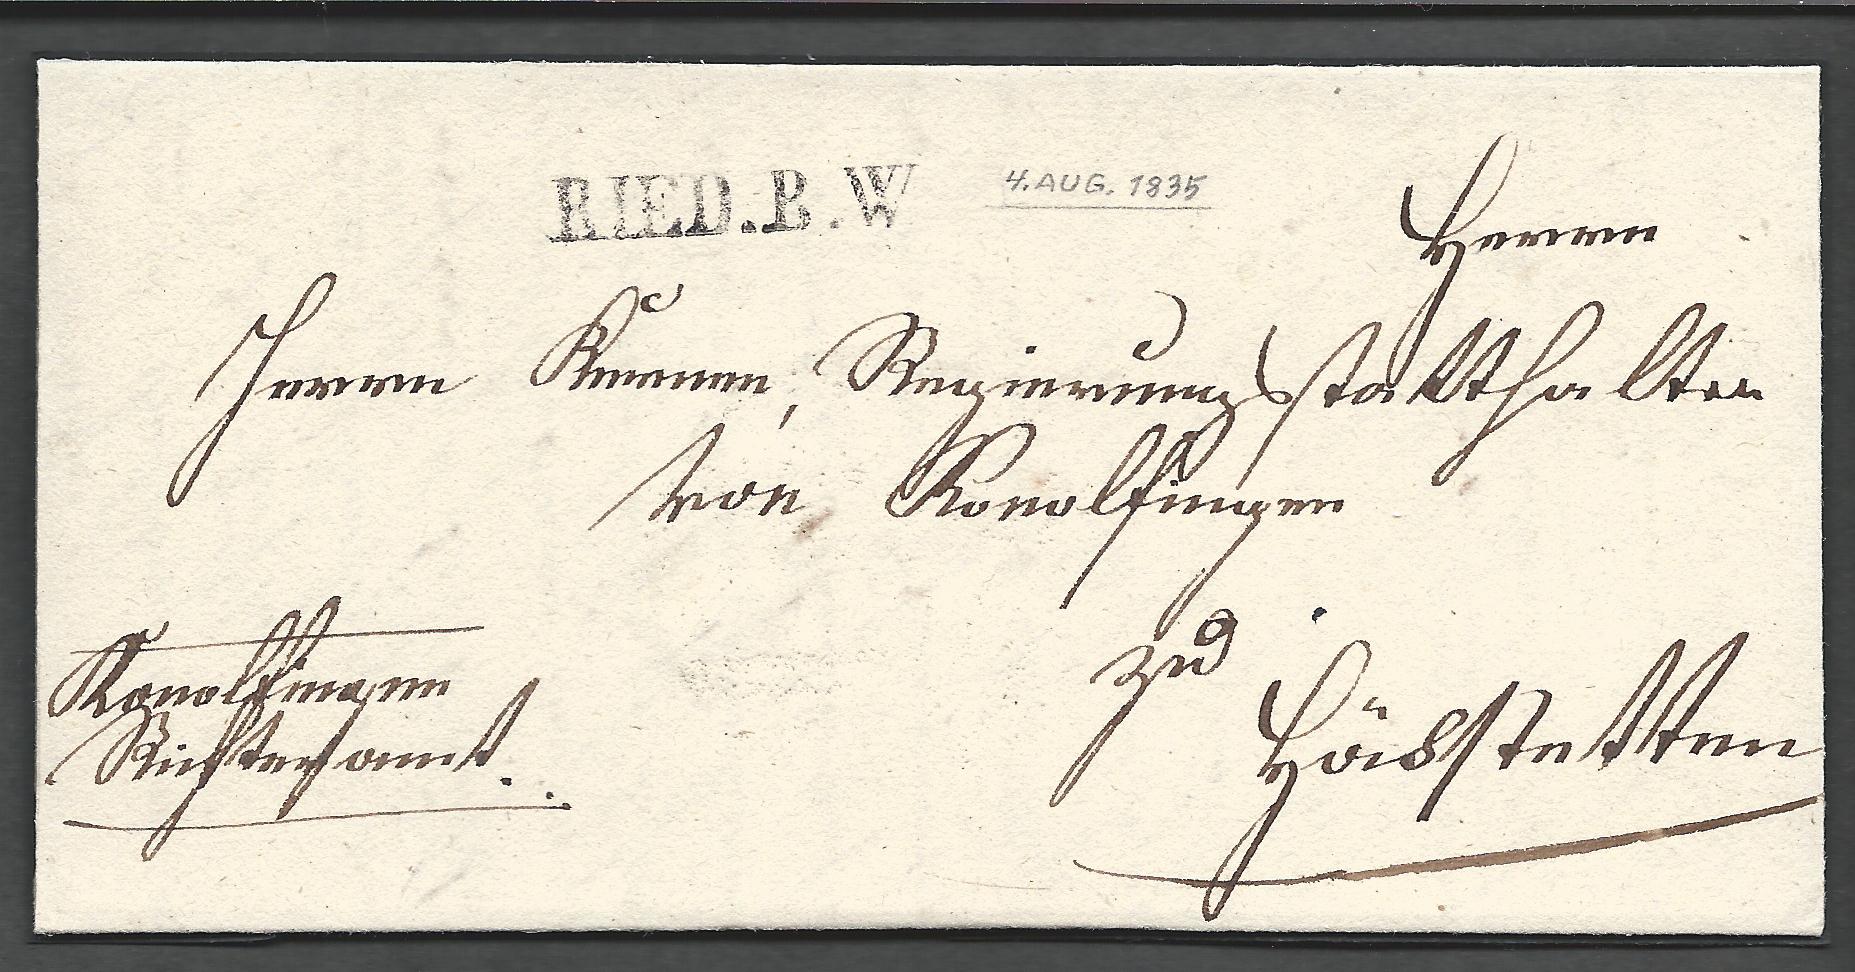 RIED.B.W
4. AUG. 1835
Herrn
Herrn Kuenen, Regierungsstatthalter
von Konolfingen
zu
Höchstetten
Konolfingen
Richteramt.